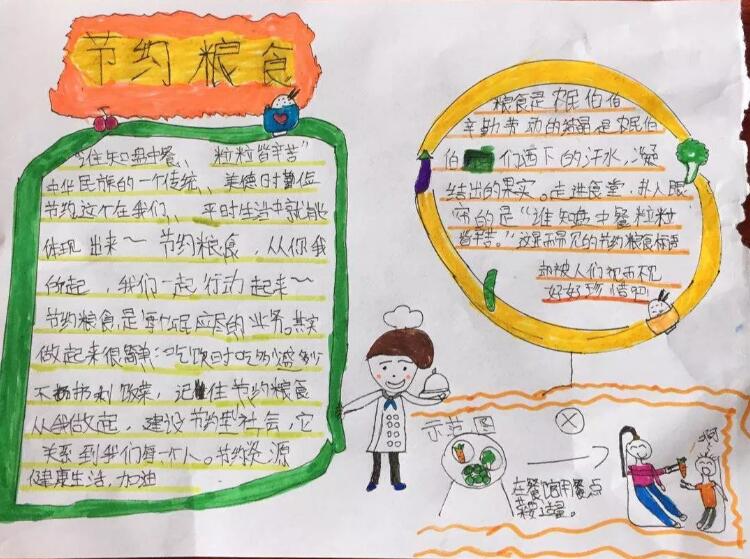 节约粮食
"谁知盘中餐、粒粒皆辛苦"
中华民族的一个传统、美德时勤俭
节约这个在我们、平时生活中就能
体现出来~节约粮食,从你我
做起,我们一起行动起来~~
节约粮食,是每个公民应尽的业务。其实
做起来很简单:吃饭时吃多少盛多少
不扔剩饭菜,记住节约粮食
从我做起,建设节约型社会,它
关系到我们每一个人。节约资源
健康生活,加油
粮食是农民伯伯
辛勤劳动的结晶是农民伯
伯们洒下的汗水,凝
结出的果实。走进食堂,扑入眼
帘的是"谁知盘中餐粒粒
皆辛苦。"这是常见的节约粮食标语
却被人们视而不见
好好珍惜吧!
示范图
在餐馆用餐点
菜要适量。
啊